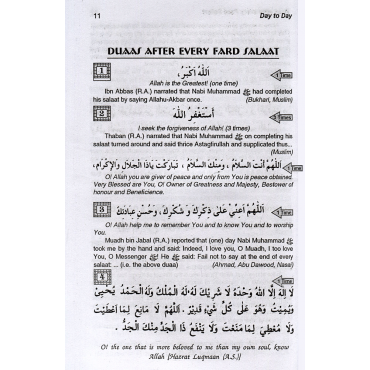 11 Day to Day
DUAAS AFTER EVERY FARD SALAAT
1 اَللّٰهُ اَكْبَرُ، 1 Time
Allah is the Greatest! (one time)
Ibn Abbas (R.A.) narrated that Nabi Muhammad ﷺ had completed
his salaat by saying Allahu-Akbar once. (Bukhari, Muslim)
2 اَسْتَغْفِرُ اللّٰهَ 3 Times
I seek the forgiveness of Allah! (3 times)
Thaban (R.A.) narrated that Nabi Muhammad ﷺ on completing his
salaat turned around and said thrice Astagfirullah and supplicated thus...
(Muslim)
اَللّٰهُمَّ اَنْتَ السَّلَامُ، وَمِنْكَ السَّلَامُ، تَبَارَكْتَ يَاذَا الْجَلَالِ وَالْاِكْرَامِ، 1 Time
O! Allah you are giver of peace and only from You is peace obtained.
Very Blessed are You, O! Owner of Greatness and Majesty, Bestower of
honour and Beneficience.
3 اَللّٰهُمَّ اَعِنِّيْ عَلىٰ ذِكْرِكَ وَ شُكْرِكَ، وَحُسْنِ عِبَادَتِكَ 1 Time
O! Allah help me to remember You and to know You and to worship
You.
Muadh bin Jabal (R.A.) reported that (one) day Nabi Muhammad ﷺ
took me by the hand and said: Indeed, I love you, O Muadh, I too love
You, O Messenger ﷺ He ﷺ said: Fail not to say at the end of every
salaat: ... (i.e. the above duaa) (Ahmad, Abu Dawood, Nasai)
4 1 Time
لَا اِلٰهَ اِلَّا اللّٰهُ وَحْدَهُ لَا شَرِيْكَ لَهُ لَهُ الْمُلْكُ وَلَهُ الْحَمْدُ يُحْيِيْ
وَيُمِيْتُ وَهُوَ عَلٰى كُلِّ شَيْءٍ قَدِيْرٌ. اَللّٰهُمَّ لَا مَانِعَ لِمَا اَعْطَيْتَ
وَلَا مُعْطِيَ لِمَا مَنَعْتَ وَلَا يَنْفَعُ ذَا الْجَدِّ مِنْكَ الْجَدُّ.
O! the one that is more beloved to me than my own soul, know
Allah {Hazrat Luqmaan (A.S.)}